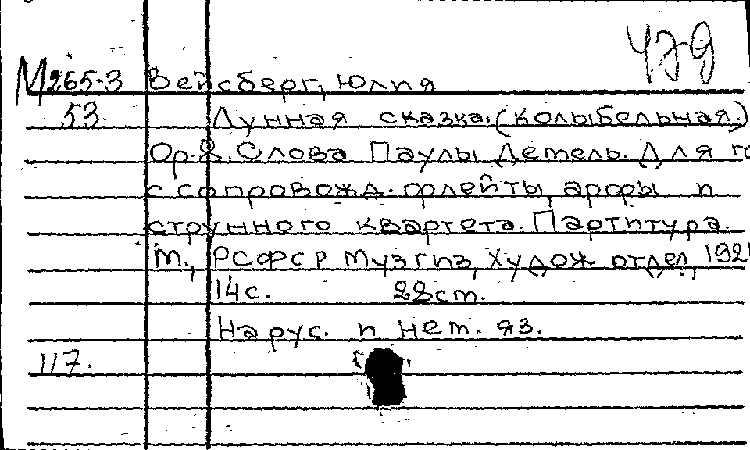 479
М265-3 Вейсберг, Юлия
53 Лунная сказка. (Колыбельная.)
Ор.8. Слова Паулы Детель. Для го
с сопровожд. флейты, арфы и
струнного квартета. Партитура.
М., РСФСР Музгиз, Худож. отдел, 192
14с. 28ст.
На рус. и нем. яз.
117.